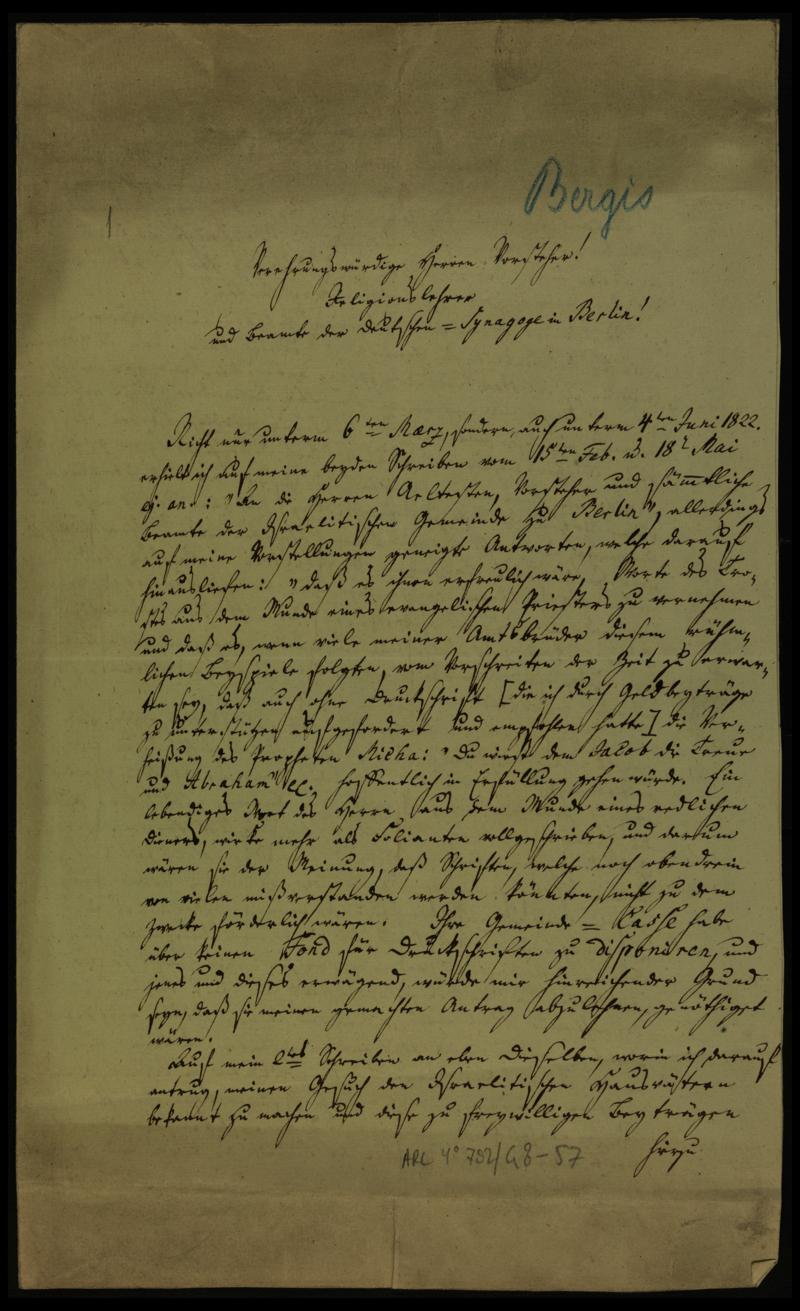 Bergis
1
Verehrungswürdige Herren Vorsteher!
Religionslehrer
und Beamte der deutschen = Synagoge in Berlin!
Nicht nur unterm 6ten Maerz, sondern auch unterm 4ten Juni 1822.
erhielt ich auf meine beyden Schreiben vom 15ten Feb. u. 18t Mai
ej. an.: "An die Herren Aeltesten, Vorsteher und sämmtliche
Beamte der Israelitischen Gemeinde zu Berlin", allerdings
auf meine Vorstellungen geneigte Antworten, welche darauf
hinausliefen: "daß es ihnen erfreulich wäre, Worte des Tro-
stes aus dem Munde eines evangelischen Priesters zu vernehmen
und daß es, wenn viele meiner Amtsbrüder diesem rühm-
lichen Beyspiele folgten, vom Vorschreiten der Zeit zu erwar-
ten sey, daß auch ohne Druckschrift [die ich durch Geldbeyträge
zu unterstützen aufgefordert und empfohlen hatte] die Ver-
heißung des Propheten Micha: "Du wirst dem Jacob die Treue
und Abraham" ec. hoffentlich in Erfüllung gehen würde. Ein
lebendiges Wort des Herrn aus dem Munde eines redlichen
Dieners, wirke mehr als Folianten vollgeschrieben, und darum
wären sie der Meinung, daß Schriften, welche noch obendrein
von vielen mißverstanden werden könnten, nicht zu dem
Zwecke förderlich wären. Ihre Gemeinde = Casse habe
über keinen Fond für Druckschriften zu disponiren, und
jenes und dieses erwägend, würde mir hinreichender Grund
seyn, daß sie meinen gemachten Antrag abzulehnen, genöthiget
wären.
Auf mein 2tes Schreiben an eben dieselben, worin ich darauf
antrug, meinen Gesuch den Israelitischen Hausvätern
bekannt zu machen und diese zu freywilligen Beyträgen
hierzu
ARC 4° 792/G8-57